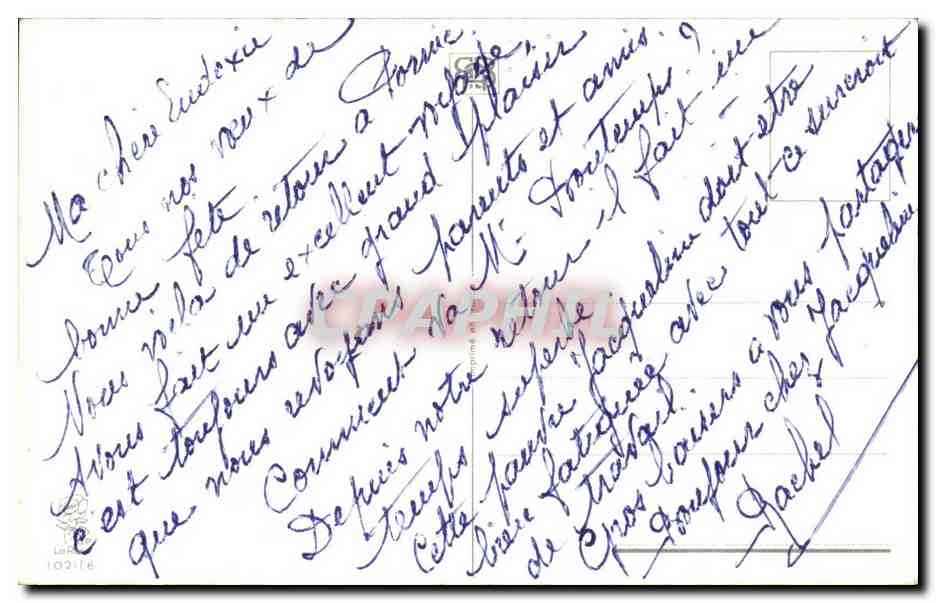 Ma chère Eudoxie
Tous nos vœux de
bonne fête.
Nous voilà de retour à Pornic.
Avons fait un excellent voyage,
c'est toujours avec grand plaisir
que nous revoyons parents et amis.
Comment va Mr ?
Depuis notre retour il fait une
temps superbe
Cette pauvre Jacqueline doit-être
bien fatiguée avec tout ce surcroit
de travail
Gros baisers à vous partager
toujours chez Jacqueline
Rachel
CPAPHIL
Imprimé
102-16